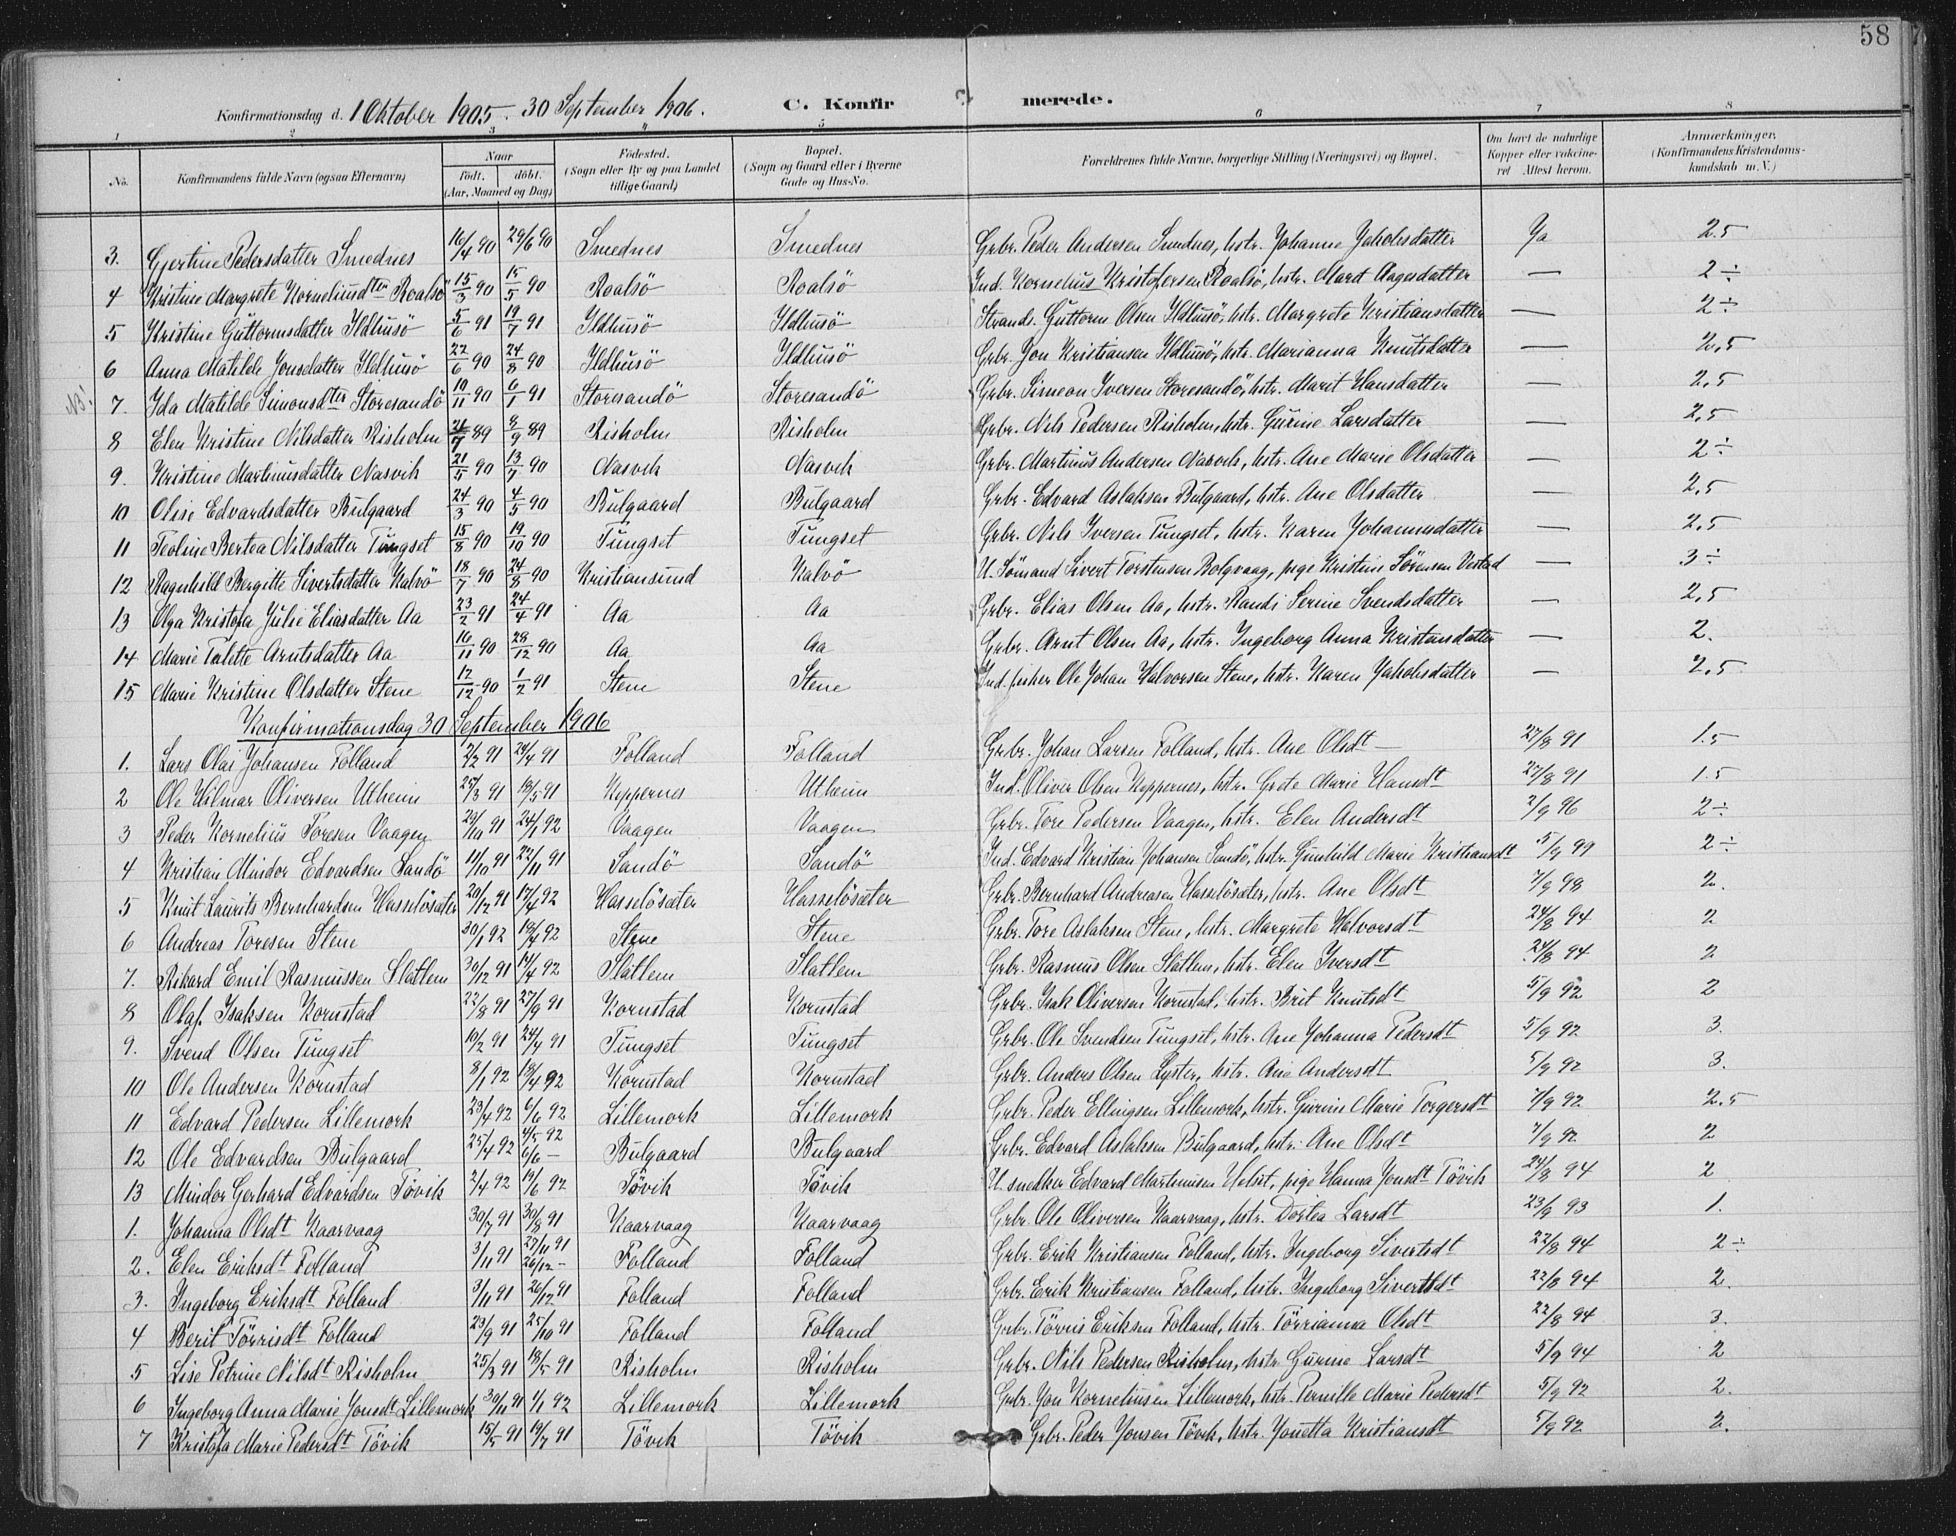 58
Konfirmationsdag d. 1 Oktober 1905 - 30 September 1906. C. Konfirmerede.
1 2 3 4 5 6 7 8
No. Konfirmandens fulde Navn (ogsaa Efternavn) Naar födt. döbt. (Aar, Maaned og Dag) Födested. (Sogn eller By og paa Landet tillige Gaard) Bopæl. (Sogn og Gaard eller i Byerne Gade og Hus-No. Forældrenes fulde Navne, borgerlige Stilling (Næringsvei) og Bopæl. Om havt de naturlige Kopper eller vakcineret Attest herom. Anmærkninger. (Konfirmandens Kristendomskundskab m. V.)
3. Gjertine Pedersdatter Smednes 16/4 90 29/6 90 Smednes Smednes Grbr. Peder Andersen Smednes, hstr. Johanne Jakobsdatter Ja 2.5
4 Kristine Margrete Korneliusdter Roalsö 15/3 90 15/5 90 Roalsö Roalsö Ind. Kornelius Kristofersen Roalsö, hstr. Marit Aagesdatter — 2÷
5 Kristine Guttormsdatter Ildhusö 5/6 91 19/7 91 Ildhusö Ildhusö Strands. Guttorm Olsen Ildhusö, hstr. Margrete Kristiansdatter — 2÷
6 Anna Matilde Jonsdatter Ildhusö 22/6 90 24/8 90 Ildhusö Ildhusö Grbr. Jon Kristiansen Ildhusö, hstr. Marianna Knutsdatter — 2,5
NB! 7. Ida Matilde Simonsdter Storesandö 10/11 90 6/1 91 Storesandö Storesandö Grbr. Simeon Iversen Storesandö, hstr. Marit Hansdatter — 2,5
8 Elen Kristine Nilsdatter Risholm 89 8/9 89 Risholm Risholm Grbr. Nils Pedersen Risholm, hstr. Gurine Larsdatter — 2,5
9. Kristine Martinusdatter Nasvik 21/5 90 13/7 90 Nasvik Nasvik Grbr. Martinus Andersen Nasvik, hstr. Ane Marie Olsdatter — 2÷
10 Olise Edvardsdatter Bulgaard 24/3 90 4/5 90 Bulgaard Bulgaard Grbr. Edvard Aslaksen Bulgaard, hstr. Ane Olsdatter — 2,5
11 Teoline Bertea Nilsdatter Tungset 15/8 90 19/10 90 Tungset Tungset Grbr. Nils Iversen Tungset, hstr. Karen Johannesdatter — 2,5
12 Ragnhild Bergitte Sivertsdatter Kalvö 18/7 90 24/8 90 Kristiansund Kalvö U. Sömand Sivert Torstensen Bolgvaag, pige Kristine Sörensen Vestad — 3÷
13 Olga Kristofa Julie Eliasdatter Aa 23/2 91 24/4 91 Aa Aa Grbr. Elias Olsen Aa, hstr. Randi Serine Svendsdatter — 2,5
14 Marie Talette Arntsdatter Aa 16/11 90 28/12 90 Aa Aa Grbr. Arnt Olsen Aa, hstr. Ingeborg Anna Kristensdatter — 2.
15 Marie Kristine Olsdatter Stene 12/12 90 1/2 91 Stene Stene Ind. fisker Ole Johan Halvorsen Stene, hstr. Karen Jakobsdatter — 2,5
Konfirmationsdag 30 September 1906
1. Lars Olai Johansen Folland 2/3 91 24/4 91 Folland Folland Grbr. Johan Larsen Folland, hstr. Ane Olsdt — 27/8 91 1.5
2 Ole Hilmar Oliversen Utheim 25/3 91 18/5 91 Keppernes Utheim Ind. Oliver Olsen Keppernes, hstr. Grete Marie Hansdt 25/8 91 1.5
3 Peder Kornelius Toresen Vaagen 29/10 91 24/1 92 Vaagen Vaagen Grbr. Tore Pedersen Vaagen, hstr. Elen Andersdt 2/9 96 2÷
4 Kristian Mindor Edvardsen Sandö 11/10 91 22/11 91 Sandö Sandö Ind. Edvard Kristian Johansen Sandö, hstr. Gunhild Marie Kristiansdt 5/9 99 2÷
5 Knut Laurits Bernhardsen Hasselösæter 20/12 91 17/4 92 Hasselösæter Hasselösæter Grbr. Bernhard Andreasen Hasselösæter, hstr. Ane Olsdt 7/9 98 2.
6 Andreas Toresen Stene 30/1 92 18/4 92 Stene Stene Grbr. Tore Aslaksen Stene, hstr. Margrete Halvorsdt 24/8 94 2
7. Rikard Emil Rasmussen Slatlem 30/12 91 14/4 92 Slatlem Slatlem Grbr. Rasmus Olsen Slatlem, hstr. Elen Iversdt 24/8 94 2
8 Olaf Isaksen Kornstad 22/8 91 27/9 91 Kornstad Kornstad Grbr. Isak Oliversen Kornstad, hstr. Brit Knutsdt 5/9 92 2
9. Svend Olsen Tungset 10/2 91 24/4 91 Tungset Tungset Grbr. Ole Svendsen Tungset, hstr. Ane Johanna Pedersdt 5/9 92 3.
10 Ole Andersen Kornstad 8/1 92 18/4 92 Kornstad Kornstad Grbr. Anders Olsen Lyster, hstr. Ane Andersdt 5/9 92 3.
11 Edvard Pedersen Lillemork 23/4 92 6/6 92 Lillemork Lillemork Grbr. Peder Ellingsen Lillemork, hstr. Gurine Marie Torgersdt 7/9 92 2.5
12 Ole Edvardsen Bulgaard 25/4 92 4/5 92 6/6 — Bulgaard Bulgaard Grbr. Edvard Aslaksen Bulgaard, hstr. Ane Olsdt 7/9 92 2
13 Mindor Gerhard Edvardsen Tövik 2/4 92 19/6 92 Tövik Tövik U. snedker Edvard Martinusen Helset, pige Hanna Jonsdt Tövik 24/8 94 2
1. Johanna Olsdt Kaarvaag 30/7 91 30/8 91 Kaarvaag Kaarvaag Grbr. Ole Oliversen Kaarvaag, hstr. Dortea Larsdt 23/8 93 1.
2. Elen Eriksdt Folland 3/11 91 27/11 91 26/12 — Folland Folland Grbr. Erik Kristiansen Folland, hstr. Ingeborg Sivertsdt 22/8 94 2÷
3. Ingeborg Eriksdt Folland 3/11 91 26/12 91 Folland Folland Grbr. Erik Kristiansen Folland, hstr. Ingeborg Sivertsdt 22/8 94 2.
4 Berit Törrisdt Folland 23/9 91 25/10 91 Folland Folland Grbr. Törris Eriksen Folland, hstr. Törrianna Olsdt 22/8 94 3.
5 Lise Petrine Nilsdt Risholm 25/3 91 18/5 91 Risholm Risholm Grbr. Nils Pedersen Risholm, hstr. Gurine Larsdt 5/9 94 2
6 Ingeborg Anna Marie Jonsdt Lillemork 30/11 91 1/1 92 Lillemork Lillemork Grbr. Jon Korneliusen Lillemork, hstr. Pernille Marie Pedersdt 5/9 92 2.
7 Kristofa Marie Pedersdt Tövik 15/5 91 19/7 91 Tövik Tövik Grbr. Peder Jonsen Tövik, hstr. Jonetta Kristiansdt 5/9 92 2.